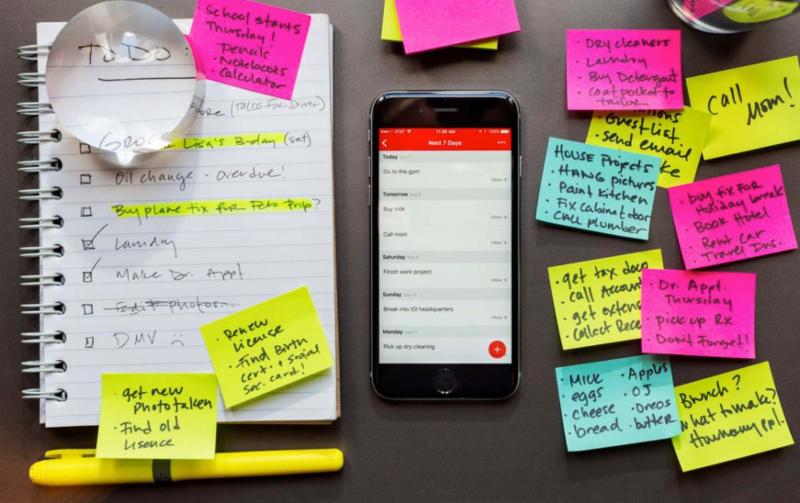 To Do:
(TACOS FOR Dinner)
Lisa's B-day (sat)
Oil change - overdue!
Buy plane tix for Feb trip?
Laundry
Make Dr. Appt
Edit photos
DMV
get new
photo taken
• Find old
lisence
• Renew
license
• Find Birth
cert. + social
sec. card!
• School starts
Thursday!
• Pencils
• Notebooks
• Calculator
AT&T
11:35 AM
Next 7 Days
Today
Go to the gym
Inbox
Tomorrow
Buy milk
Inbox
Call mom
Inbox
Saturday
Finish work project
Inbox
Sunday
Break into IOI headquarters
Inbox
Monday
Pick up dry cleaning
• Dry cleaners
• Laundry
• Buy Detergent
• coat pocket to
tailor
Guest List
• send email
Call
Mom!
HOUSE Projects
• HANG pictures
• Paint kitchen
• Fix cabinet door
• CALL plumber
• buy tix FOR
Holiday break
• Book Hotel
• Rent car
• Travel Ins.
• get tax docs
• call Account
• get extens
• Collect Rece
• Dr. Appt.
Thursday
• pick up Rx
• Don't Forget!
• Milk
• eggs
• cheese
• bread
• Apples
• OJ
• Oreos
• butter
Brunch?
what to make?